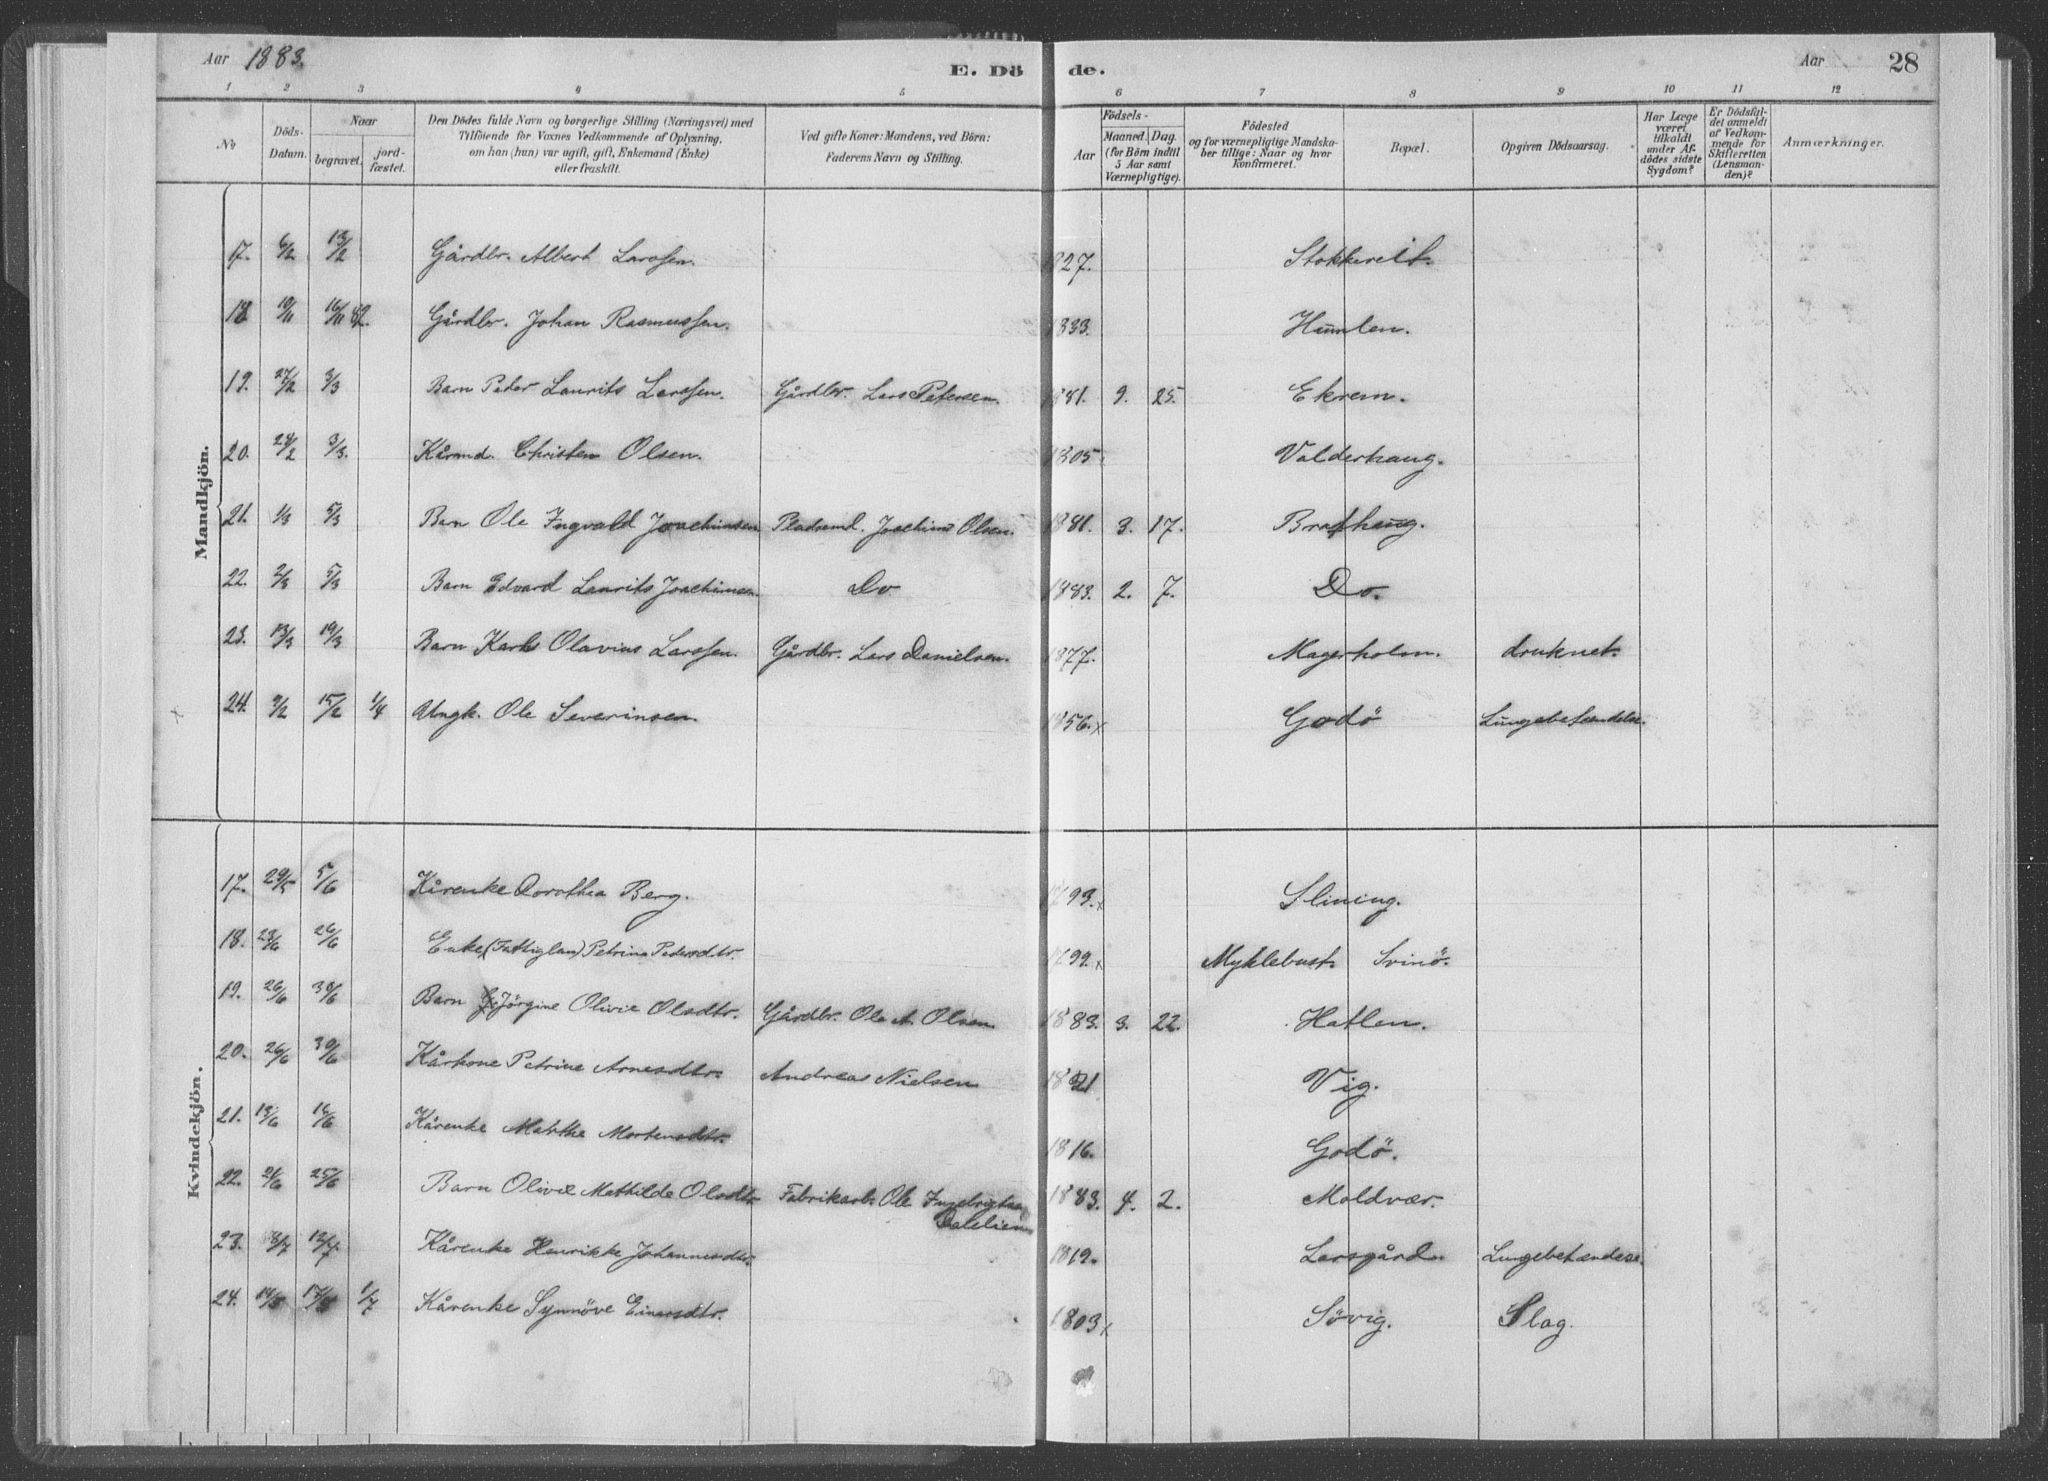 Aar 1883.
E. Dö de.
Aar 28
1 2 3 4 5 6 7 8 9 10 11 12
No
Döds-Datum.
Naar
begravet.
jord-fæstet.
Den Dödes fulde Navn og borgerlige Stilling (Næringsvei) med
Tilföiende for Voxnes Vedkommende af Oplysning,
om han (hun) var ugift, gift, Enkemand (Enke)
eller fraskilt.
Ved gifte Koner: Mandens, ved Börn:
Faderens Navn og Stilling.
Födsels-
Aar
Maaned. Dag.
(for Börn indtil
5 Aar samt
Værnepligtige).
Födested
og for værnepligtige Mandska-
ber tillige: Naar og hvor
konfirmeret.
Bopæl.
Opgiven Dödsaarsag.
Har Læge
været
tilkaldt
under Af-
dödes sidste
Sygdom?
Er Dödsfal-
det anmeldt
af Vedkom-
mende for
Skifteretten
(Lensman-
den)?
Anmærkninger.
Mandkjön.
17. 6/2 13/2 Gårdbr. Albert Larssen. 1827. Stokkereit.
18 10/11 16/11 82. Gårdbr. Johan Rasmussen. 1833. Humlen.
19. 27/2 3/3 Barn Peder Laurits Larssen. Gårdbr. Lars Petersen. 1881. 9. 25. Ekrem.
20. 24/2 3/3. Kårmd. Christen Olsen. 1805. Valderhaug.
21. 1/3 5/3 Barn Ole Ingvald Joachimsen Pladsmd. Joachim Olsen. 1881. 3. 17. Brathaug.
22. 2/3 5/3 Barn Edvard Laurits Joachimsen Do 1883. 2. 7. Do.
23. 13/3 19/3 Barn Karls Olavius Larssen. Gårdbr. Lars Danielsen. 1877. Magerholm. druknet.
24. 9/2 15/2 1/4 Ungk. Ole Severinsen 1856. x Godö Lungebetændelse.
Kvindekjön.
17. 29/5 5/6 Kårenke Dorothea Berg. 1793. x Slining.
18. 23/6 26/6 Enke (Fattiglem) Petrine Pedersdtr. 1799. x Myklebust Svinö.
19. 26/6 30/6 Barn Jörgine Olivie Olsdtr. Gårdbr. Ole A. Olsen 1883. 3. 22. Hatlen.
20. 26/6 30/6 Kårkone Petrine Arnesdtr. Andreas Nielsen 1821 Vig.
21. 13/6 16/6 Kårenke Marthe Mortensdtr. 1816. Godö.
22. 21/6 25/6 Barn Olivie Mathilde Olsdtr Fabrikarb. Ole Ingebrigtsen Dalelien 1883. 4. 2. Moldvær.
23. 8/7 12/7. Kårenke Henrikke Johannesdtr. 1819. Larsgård. Lungebetændelse.
24. 14/5 17/5 1/7 Kårenke Synnöve Einarsdtr. 1803 x Sövig. Slag.